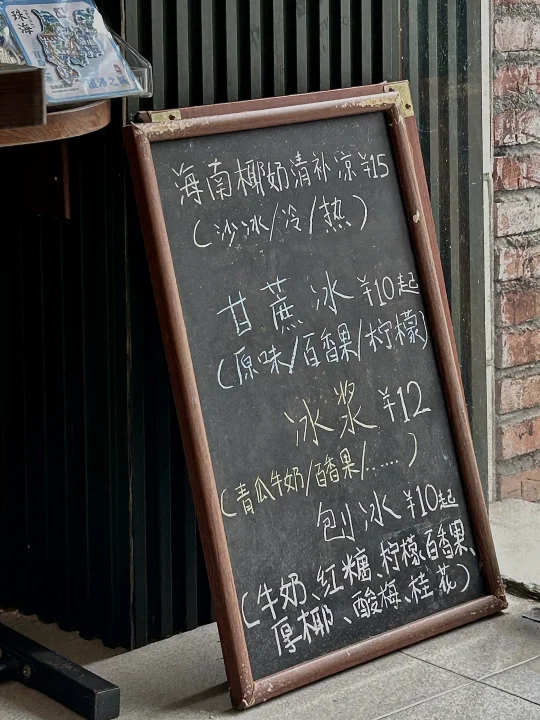 珠海
海南椰奶清补凉 ¥15
(沙冰/冷/热)
甘蔗冰 ¥10起
(原味/百香果/柠檬)
冰浆 ¥12
(青瓜牛奶/百香果/......)
刨冰 ¥10起
(牛奶、红糖、柠檬、百香果、
厚椰、酸梅、桂花)